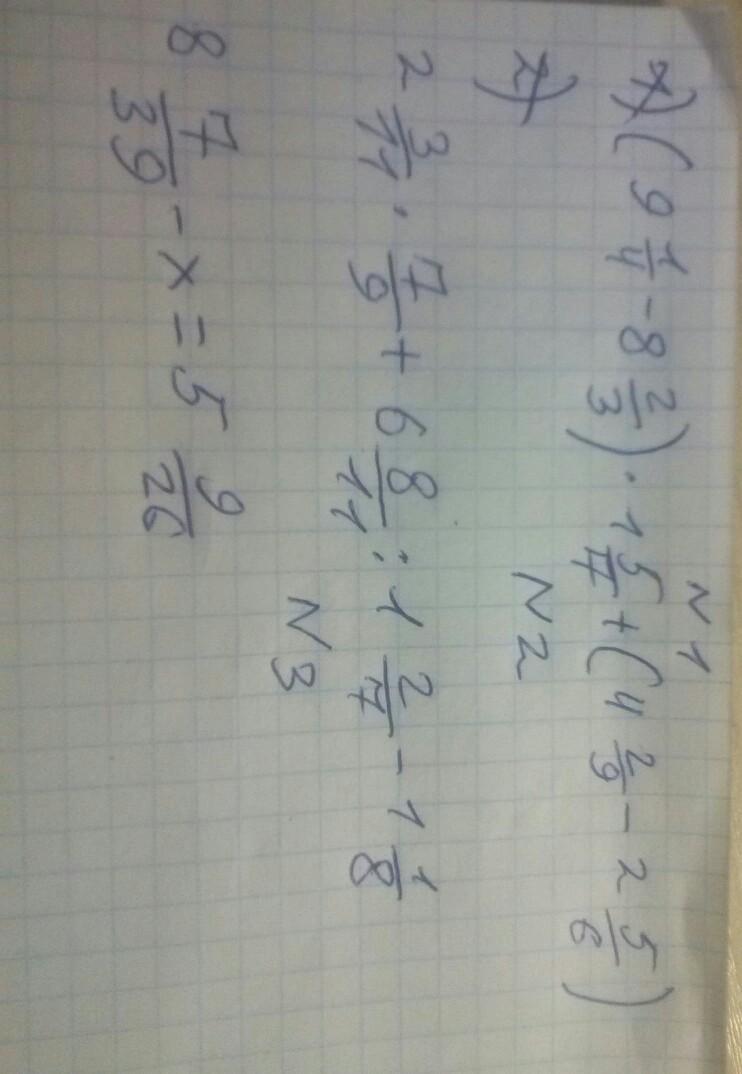 N 1
1) (9 1/4 - 8 2/3) · 1 5/7 + (4 2/9 - 2 5/6)
N 2
2)
2 3/11 · 7/9 + 6 8/11 : 1 2/7 - 1 1/8
N 3
8 7/39 - x = 5 9/26